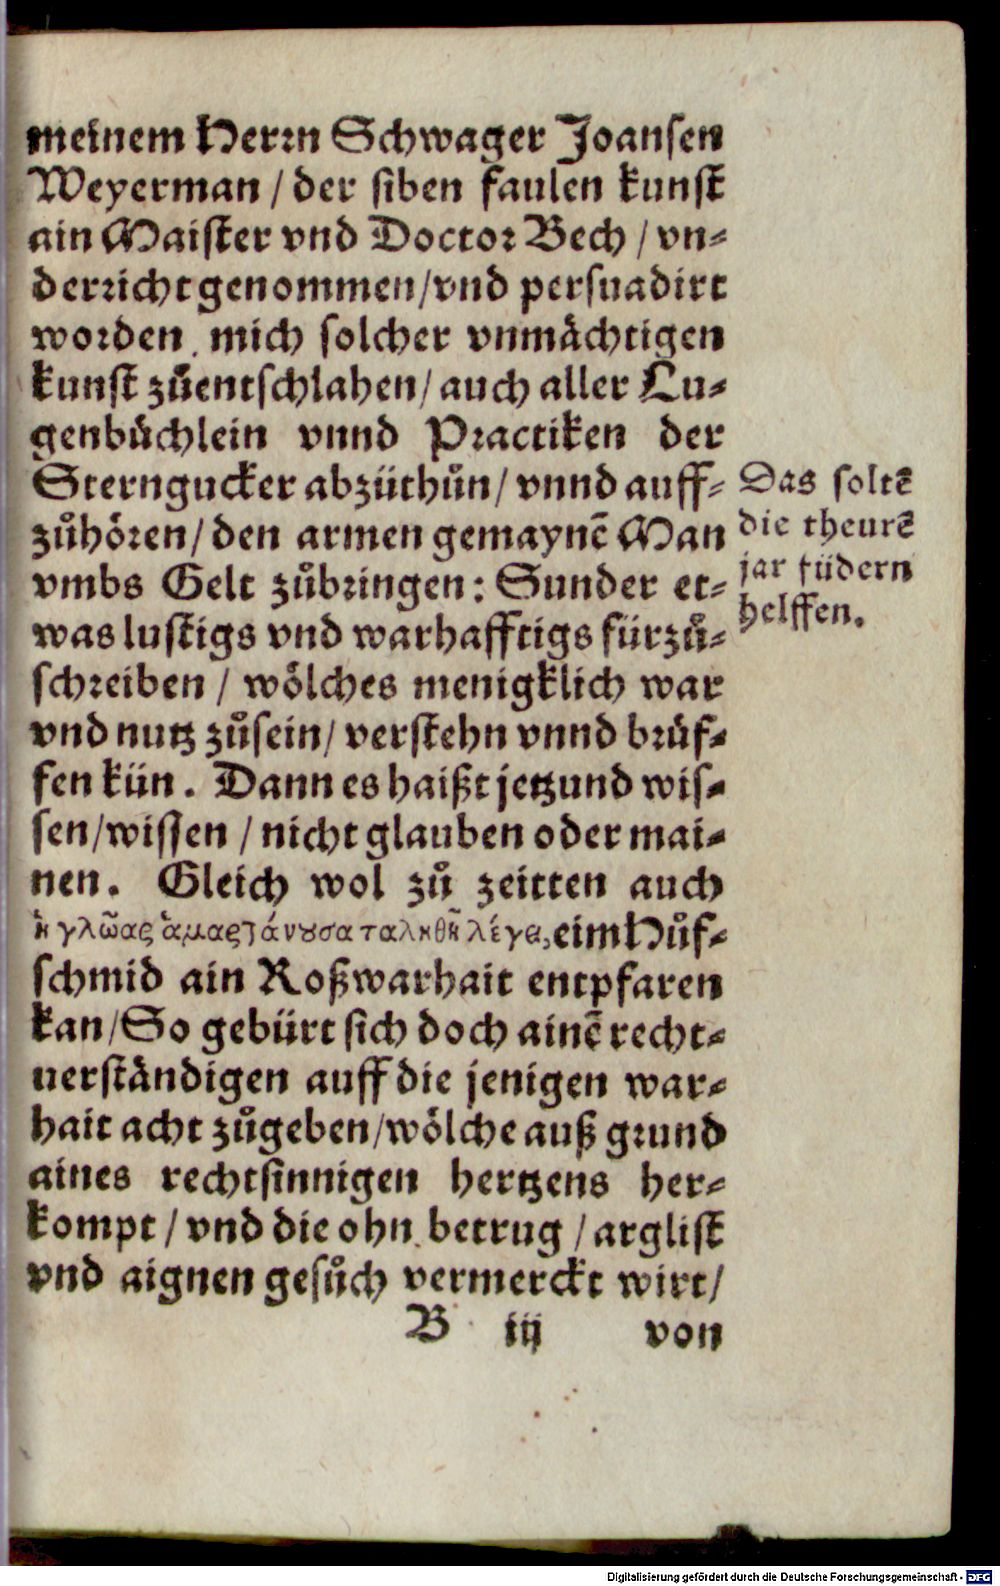 meinem Herrn Schwager Joansen
Weyerman / der siben faulen kunst
ain Maister vnd Doctor Bech / vn-
derricht genommen/vnd persuadirt
worden, mich solcher vnmächtigen
kunst zůentschlahen/ auch aller Lu-
genbüchlein vnnd Practiken der
Sterngucker abzüthůn/ vnnd auff-
zůhören/ den armen gemaynē Man
vmbs Gelt zůbringen: Sunder et-
was lustigs vnd warhafftigs fürzů-
schreiben / wölches menigklich war
vnd nutz zůsein/ verstehn vnnd brüf-
fen kün. Dann es haißt jetzund wis-
sen/wissen / nicht glauben oder mai-
nen. Gleich wol zů zeitten auch
ἡ γλῶας ἁμαρτάνουσα ταληθῆ λέγει, eim Hůf-
schmid ain Roßwarhait entpfaren
kan/So gebürt sich doch ainē recht-
uerständigen auff die jenigen war-
hait acht zůgeben/wölche auß grund
aines rechtsinnigen hertzens her-
kompt / vnd die ohn betrug / arglist
vnd aignen gesůch vermerckt wirt/
B iij von
Das soltē
die theurē
jar füdern
helffen.
Digitalisierung gefördert durch die Deutsche Forschungsgemeinschaft - DFG